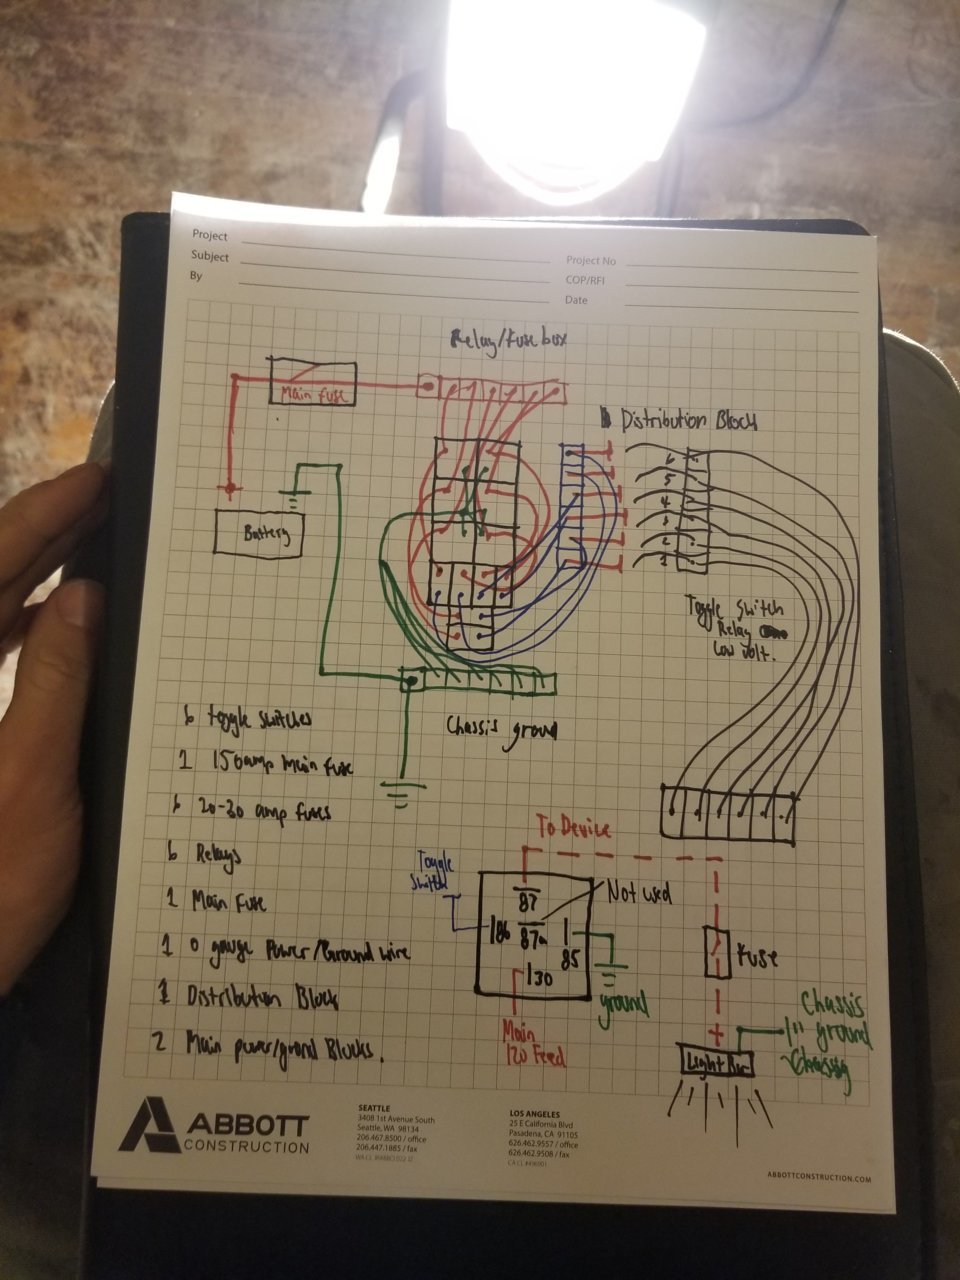 Project
Subject
By
Project No
COP/RFI
Date
Relay/Fuse box
Main fuse
Distribution Block
Battery
6
5
4
3
2
1
Toggle switch
Relay
Low volt.
Chassis ground
6 toggle switches
1 150amp Main Fuse
6 20-30 amp fuses
6 Relays
1 Main Fuse
1 0 gauge Power/Ground wire
1 Distribution Block
2 Main power/ground Blocks.
To Device
Toggle
Switch
Not used
87
86
87a
85
30
ground
Main
12v Feed
Fuse
Chassis
ground
Light Bar
ABBOTT
CONSTRUCTION
SEATTLE
3408 1st Avenue South
Seattle, WA 98134
206.467.8500 / office
206.447.1885 / fax
LOS ANGELES
25 E California Blvd
Pasadena, CA 91105
626.462.9557 / office
626.462.9508 / fax
ABBOTTCONSTRUCTION.COM